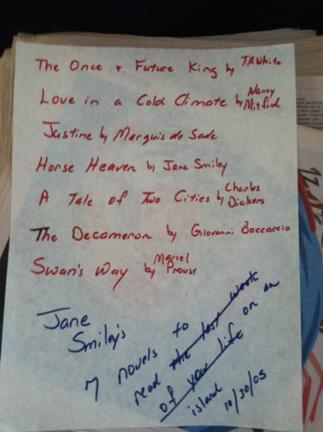 The Once & Future King by T.H. White
Love in a Cold Climate by Nancy Mitford
Justine by Marquis de Sade
Horse Heaven by Jane Smiley
A Tale of Two Cities by Charles Dickens
The Decameron by Giovanni Boccaccio
Swan's Way by Marcel Prouse
Jane
Smiley's
7 novels to
read the last week
of your life on an
island 10/30/05